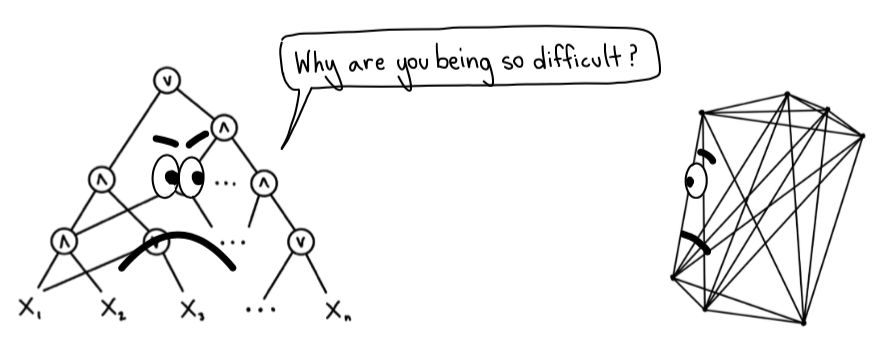 Why are you being so difficult?
∨
∧
∧
...
∧
∧
∨
...
∨
X₁ X₂ X₃ ... Xₙ